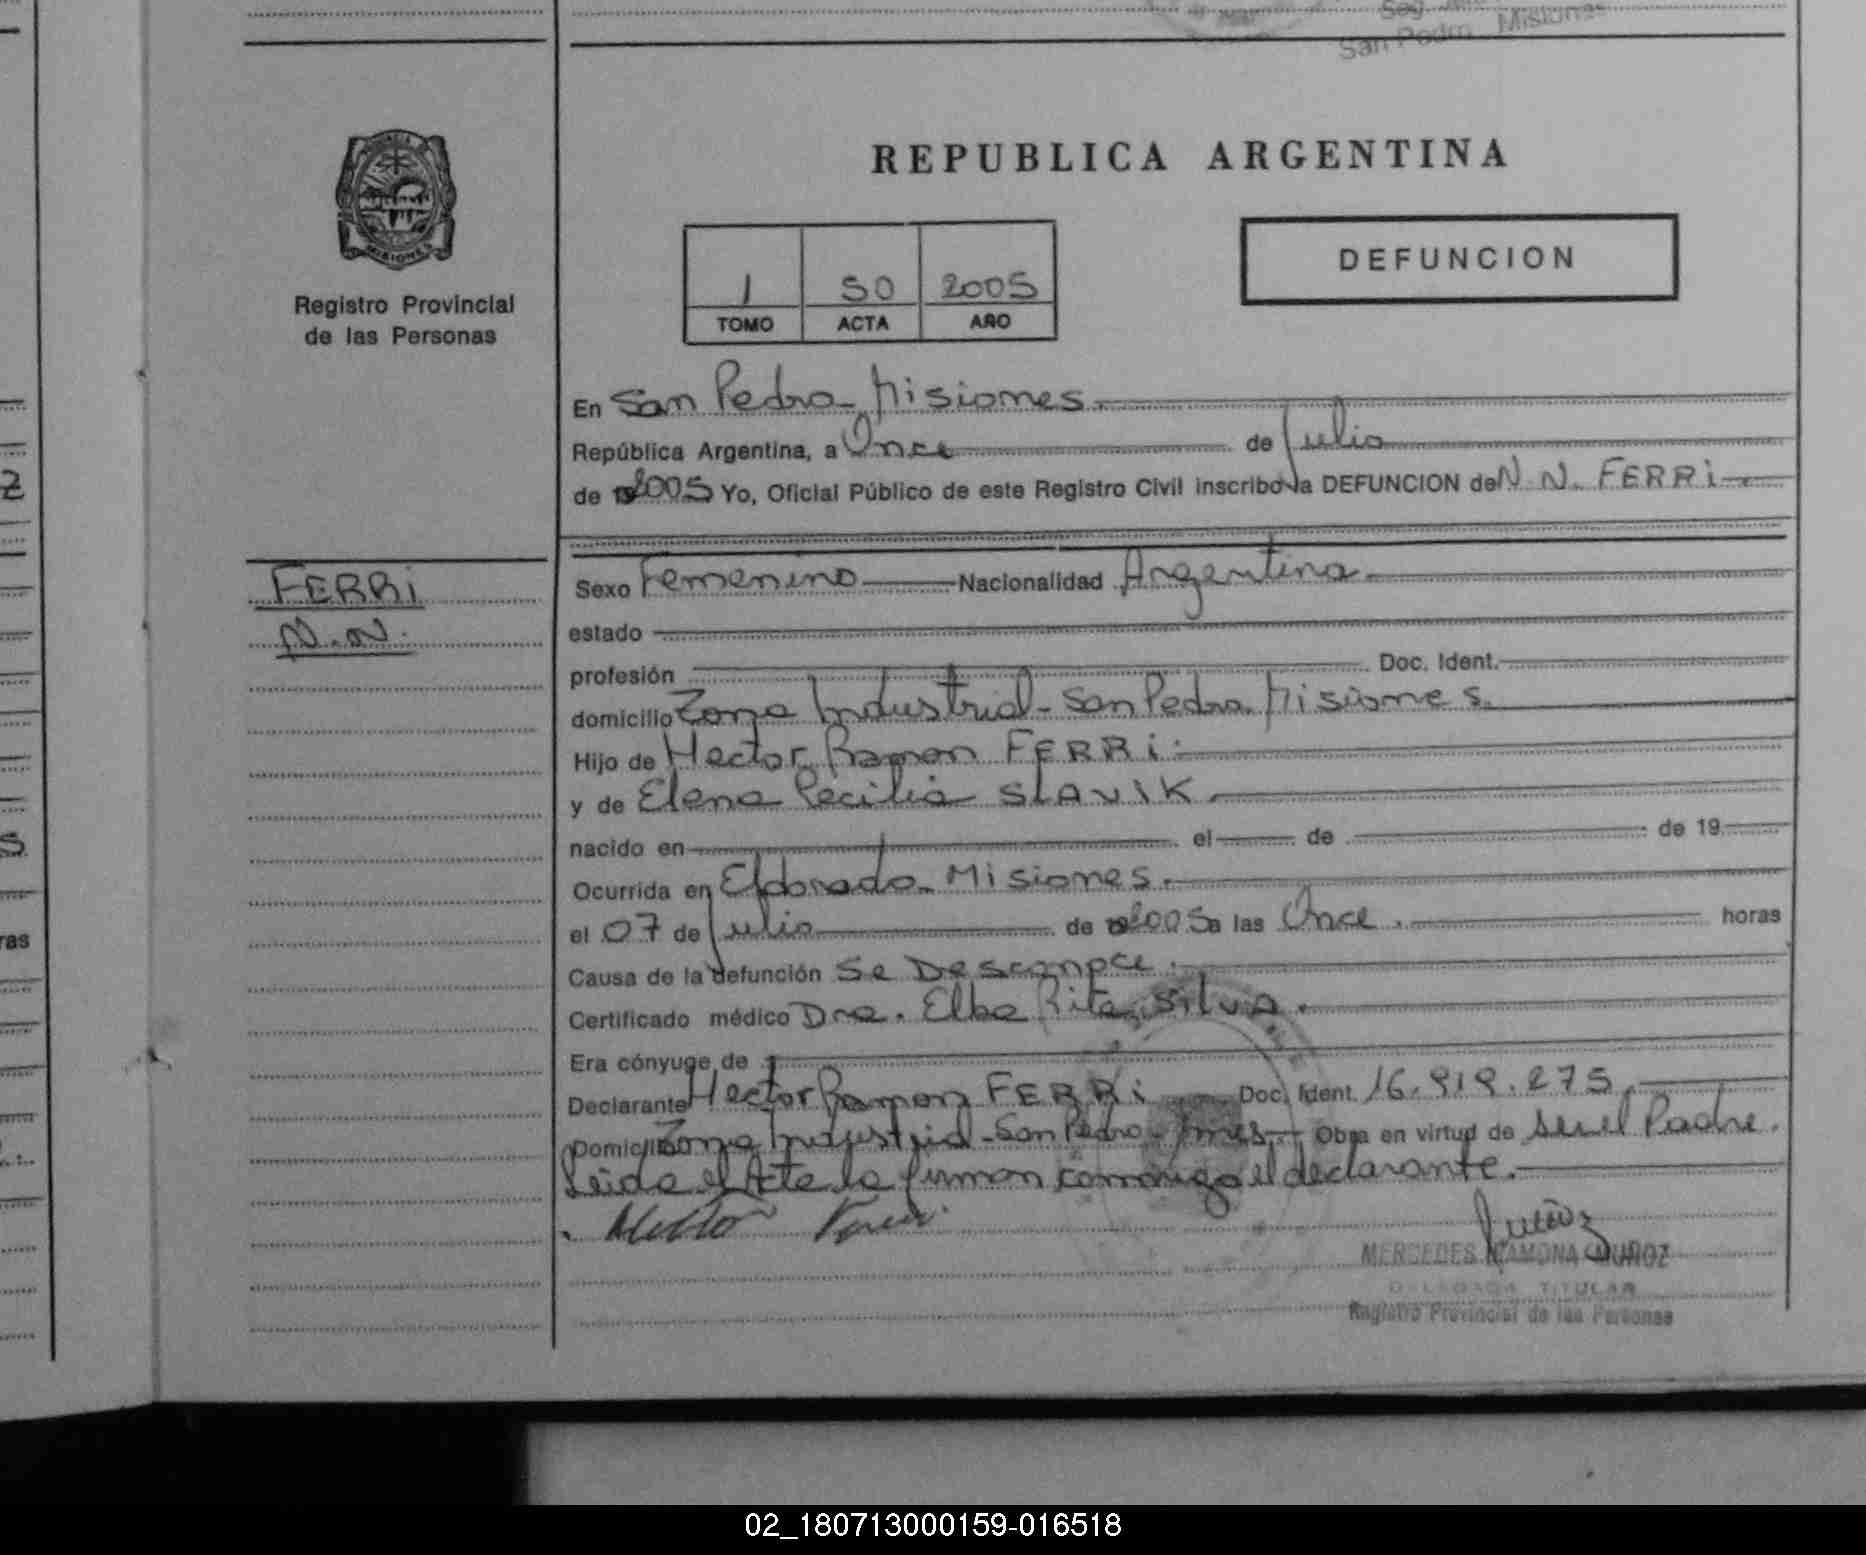 San Pedro Misiones
REPUBLICA ARGENTINA
PROVINCIA DE
MISIONES
Registro Provincial
de las Personas
1 50 2005
TOMO ACTA AÑO
DEFUNCION
En San Pedro - Misiones.
República Argentina, a Once de Julio
de 2005 Yo, Oficial Público de este Registro Civil inscribo la DEFUNCION de N. N. FERRi
FERRi
N. N.
Sexo Femenino Nacionalidad Argentina
estado
profesión Doc. Ident.
domicilio Zona Industrial - San Pedro. Misiones.
Hijo de Hector Ramon FERRi.
y de Elena Cecilia SLAVIK
nacido en el de de 19
Ocurrida en Eldorado - Misiones.
el 07 de Julio de 2005 a las Once. horas
Causa de la defunción Se Desconoce.
Certificado médico Dra. Elba Rita Silva.
Era cónyuge de
Declarante Hector Ramon FERRi Doc. Ident. 16.919.275.
Domicilio Zona Industrial - San Pedro - Mnes. Obra en virtud de ser el Padre.
Leida el Acta la firman conmigo el declarante.
Hector Ferri
Muñoz
MERCEDES RAMONA MUÑOZ
DELEGADA TITULAR
Registro Provincial de las Personas
02_180713000159-016518